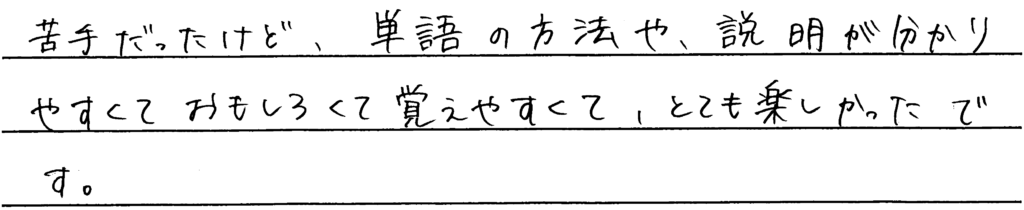 苦手だったけど、単語の方法や、説明が分かり
やすくておもしろくて覚えやすくて、とても楽しかったで
す。